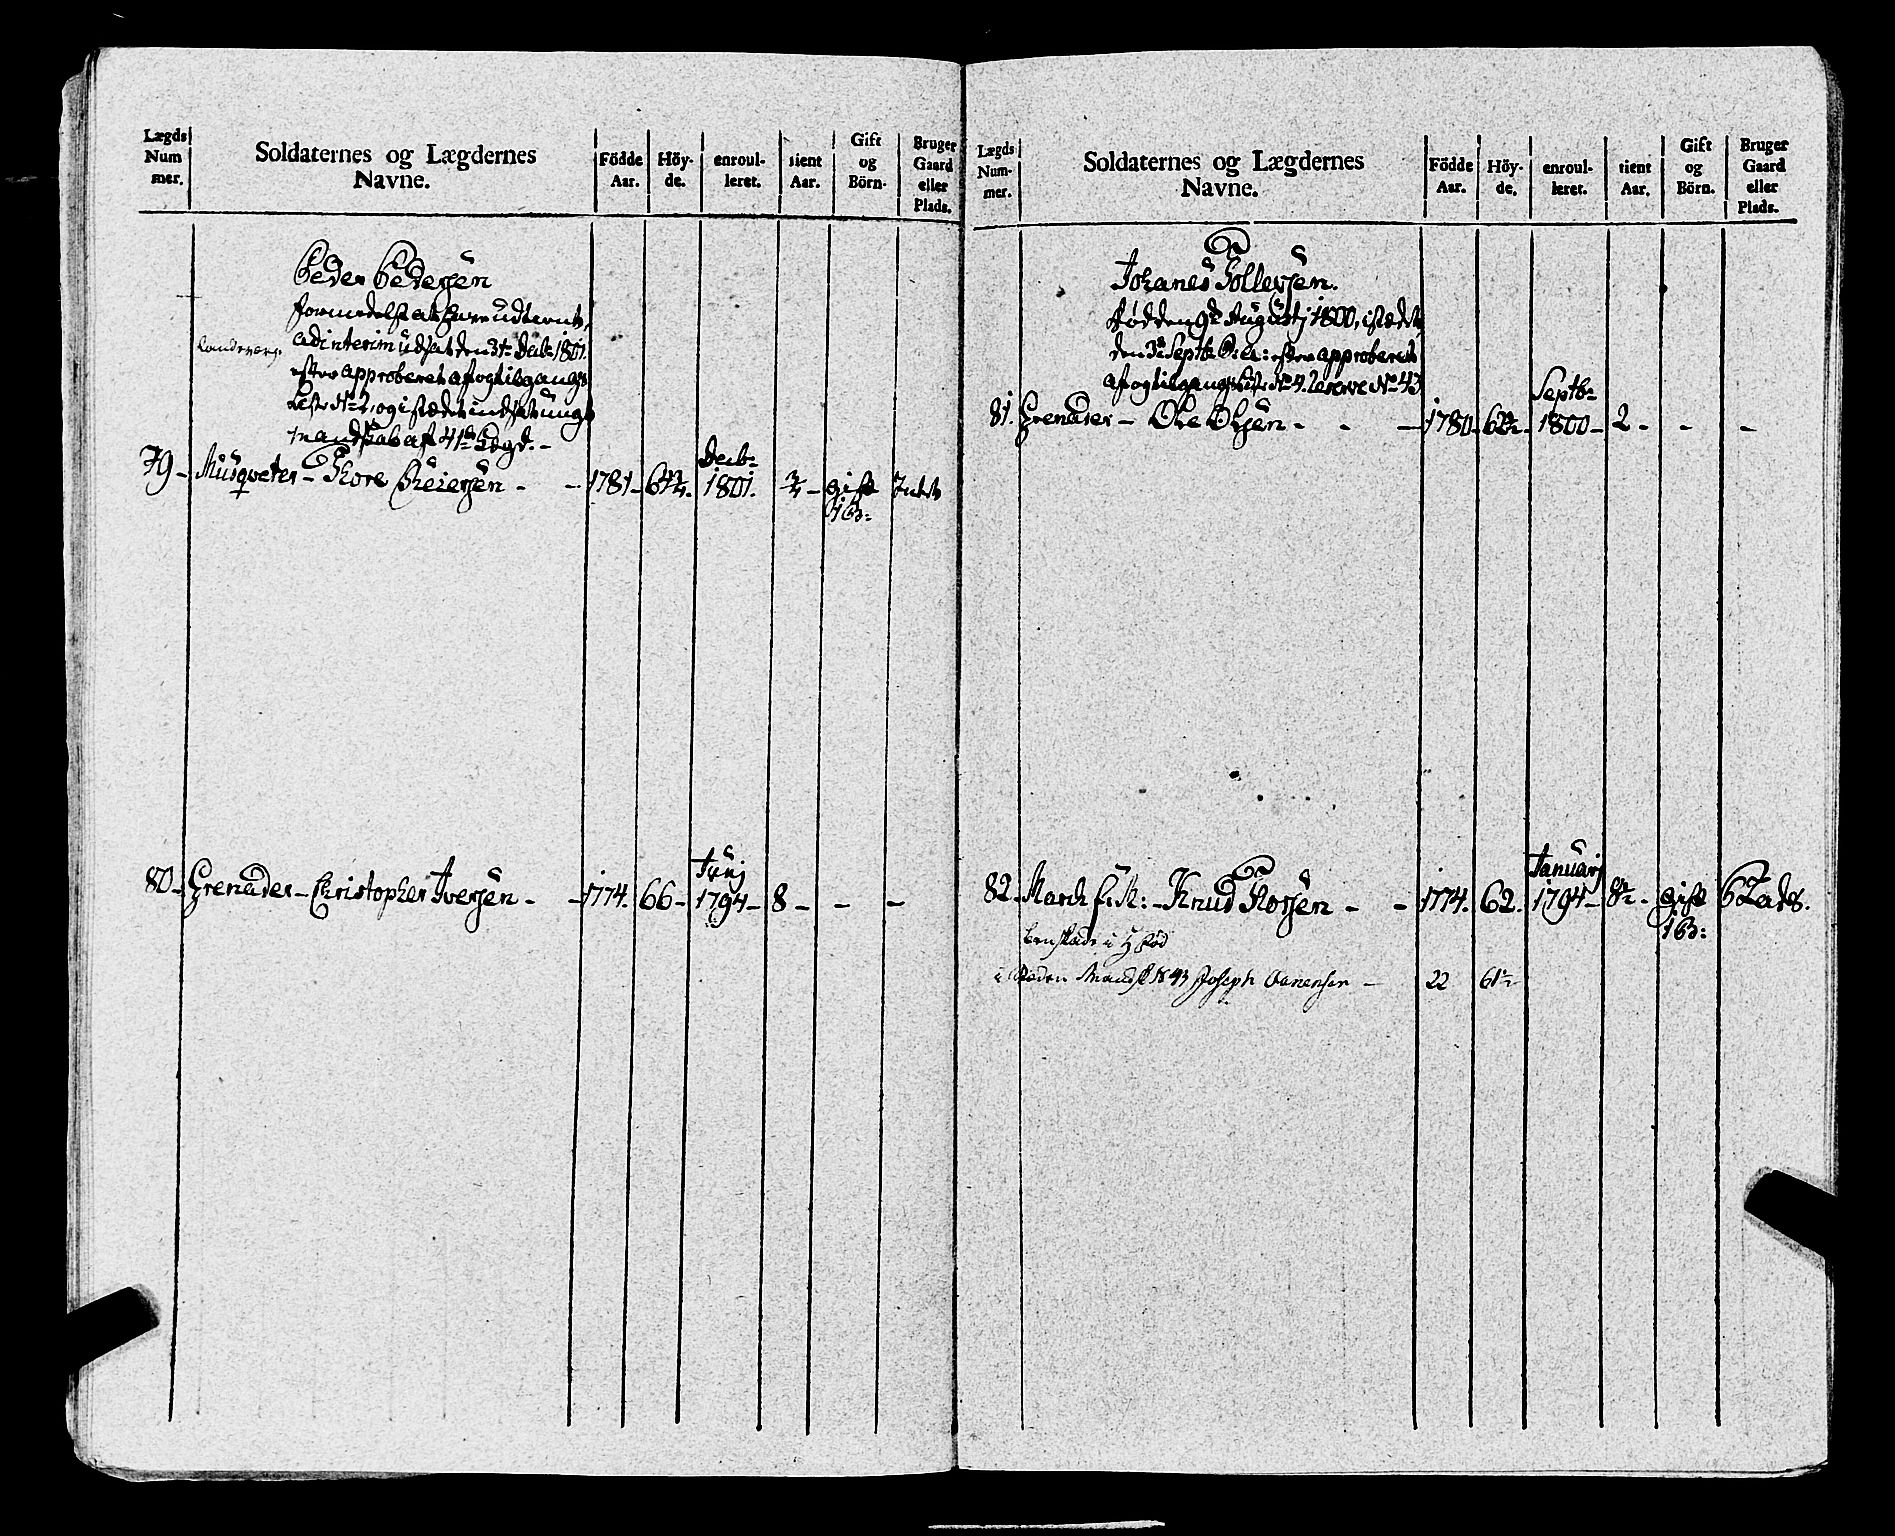 Lægds Num mer.
Soldaternes og Lægdernes Navne.
Födde Aar.
Höy- de.
enroul- leret.
tient Aar.
Gift og Börn.
Bruger Gaard eller Plads.
Peder Pedersen
formedelst at være udtient,
Landeverge
ad interim udsat den 31te Decbr 1801.
efter approberet af og tilgangs
Liste No 2, og i stædet indsat ung
mandskab af 41de Lægd. -
79 - Musqveter - Thore Cheiersen - - 1781 - 64 Decbr 1801. - gift 1 B:
80 - Grenader - Christopher Iversen - - 1774. 66 - Junj 1794 - 8 - - -
Lægds Num- mer.
Soldaternes og Lægdernes Navne.
Födde Aar.
Höy- de.
enroul- leret.
tient Aar.
Gift og Börn.
Bruger Gaard eller Plads.
Johanes Tollevsen.
död den 9de Augustj 1800, i stædet
den 3de Septbr efter approberet
af og tilgangs Liste No 4. Reserve No 43
81. Grenader - Ole Olsen - - - 1780 - 62 Septbr 1800 - 2 - - -
82 - Knud Thorsen - - 1774. 62. Januarj 1794 - 8½ - gift 1 B: Plads.
i Stæden Mandsk N 43 Joseph Aanensen - 22 61½